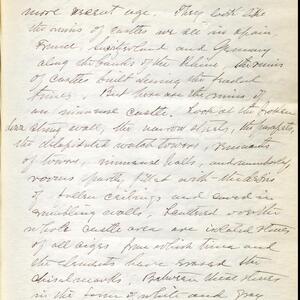 more recent age. They look like
the ruins of castles we see in Spain,
France, Switzerland and Germany
along the banks of the Rhine, the ruins
of castles built during the feudal
times. But here are the ruins of
an immense castle. Look at the broken
down strong wall, the narrow slits, the parapets,
the dilapidated watch towers, remnants
of towers, immense halls, and
rooms partly filled with the debris
of fallen ceilings and caved in
crumbling walls. Scattered over the
whole castle area are isolated stones
of all sizes from which time and
the elements have erased the
chisel marks. Between these stones
in the form of white and gray